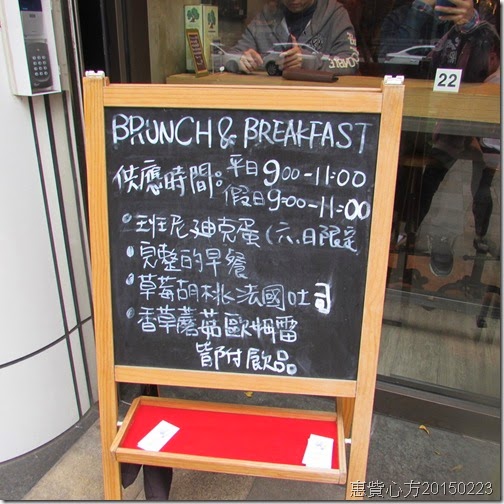 BRUNCH & BREAKFAST
供應時間:平日9:00-11:00
假日9:00-11:00
•班尼迪克蛋(六.日限定)
•完整的早餐
•草莓胡桃法國吐司
•香草蘑菇歐姆蕾
皆附飲品。
22
惠贊心方20150223